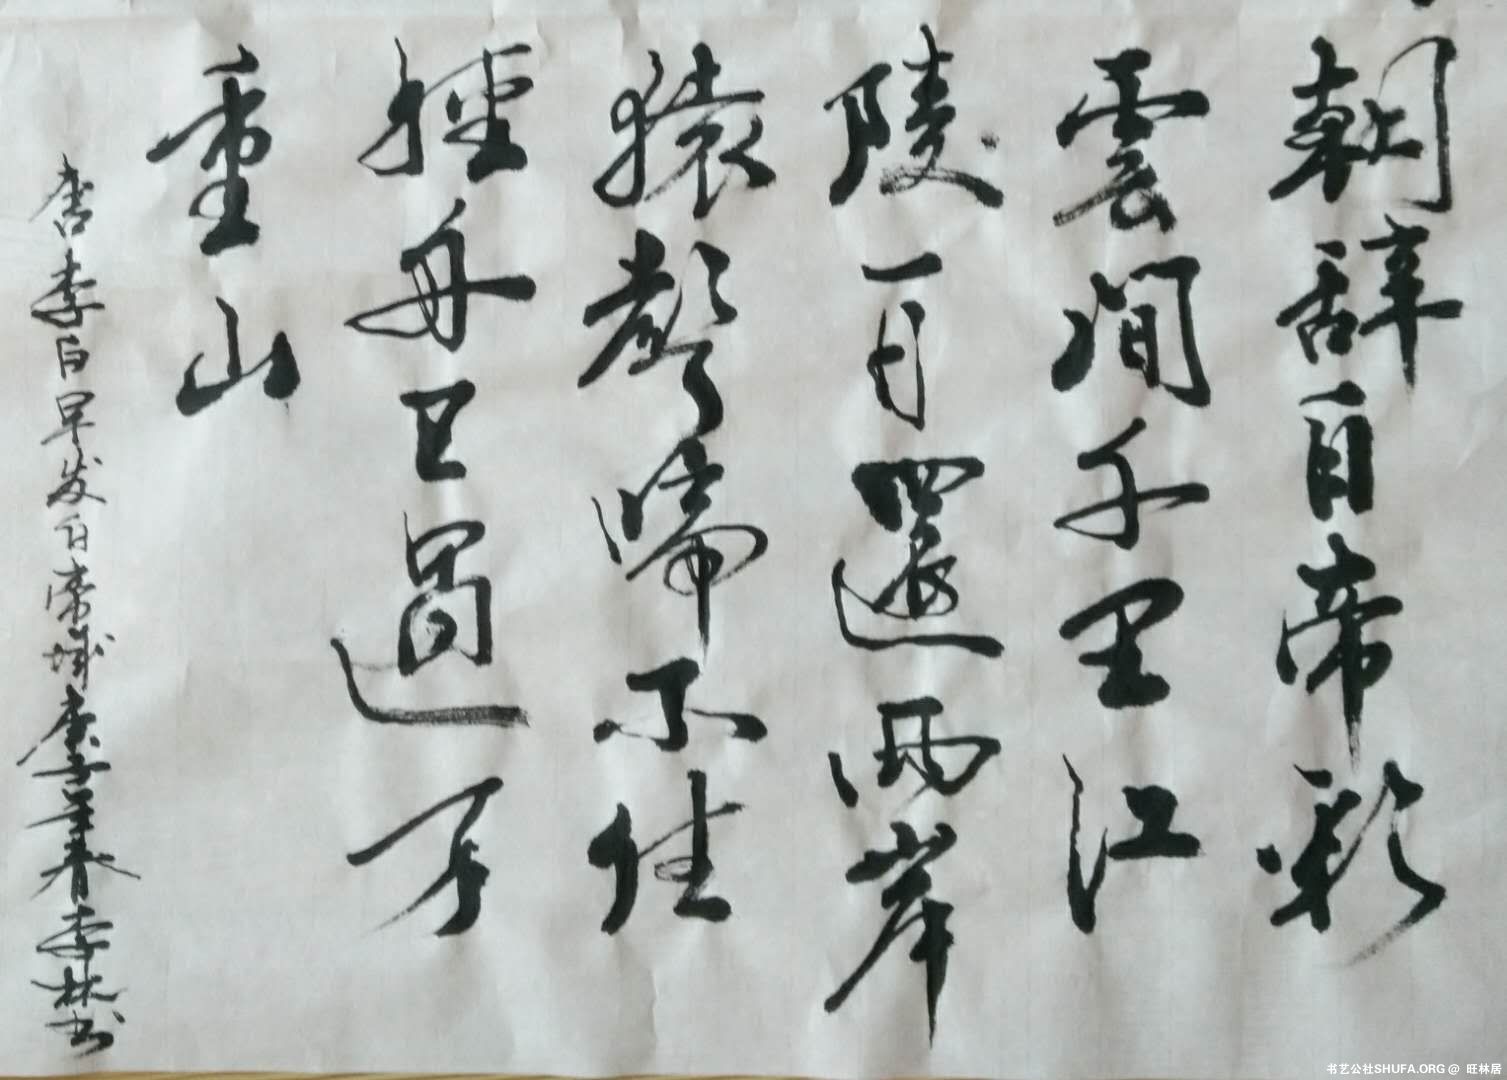 朝辞白帝彩
雲間千里江
陵一日還兩岸
猿聲啼不住
輕舟已過万
重山
唐李白早发白帝城庚子年春李林书
书艺公社SHUFA.ORG @ 旺林居